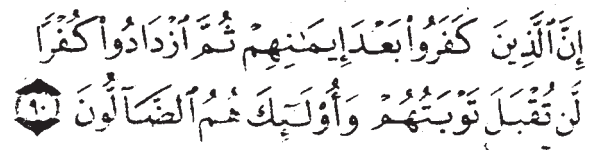 إِنَّ ٱلَّذِينَ كَفَرُوا۟ بَعْدَ إِيمَـٰنِهِمْ ثُمَّ ٱزْدَادُوا۟ كُفْرًا
لَّن تُقْبَلَ تَوْبَتُهُمْ وَأُو۟لَـٰٓئِكَ هُمُ ٱلضَّآلُّونَ ٩٠